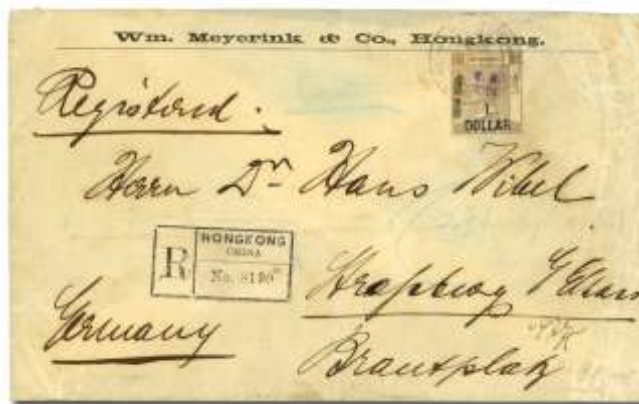 Wm. Meyerink & Co., Hongkong.
1
DOLLAR
Registered.
Herrn Dr Hans Wibel
HONGKONG
CHINA
R
No.
Strassburg i/Elsass
Germany
Brantplatz